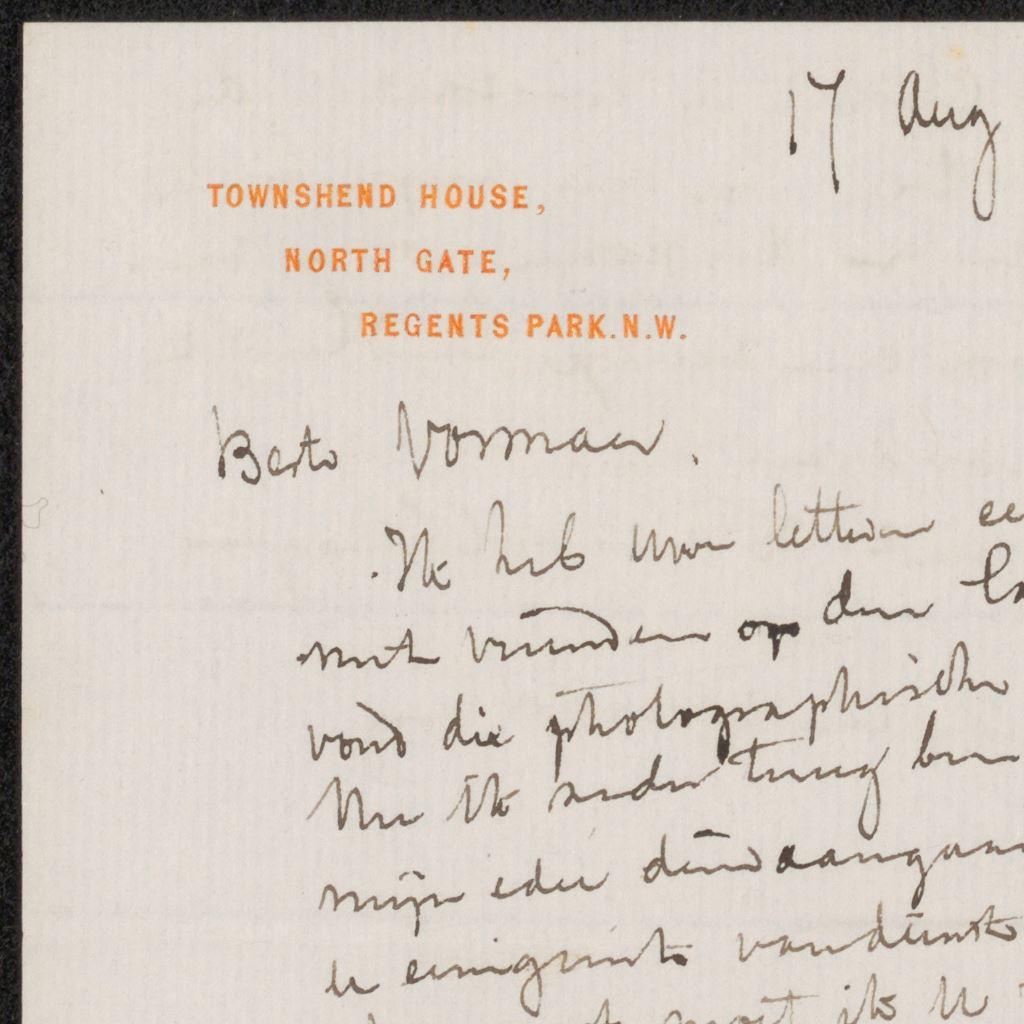 17 Aug
TOWNSHEND HOUSE,
NORTH GATE,
REGENTS PARK. N.W.
Beste Vosmaer.
Ik heb Uwe letteren
met vrienden op den
vond die photographische
Nu ik weder terug ben
mijn idee
u eenigzints van dienst
moet ik U